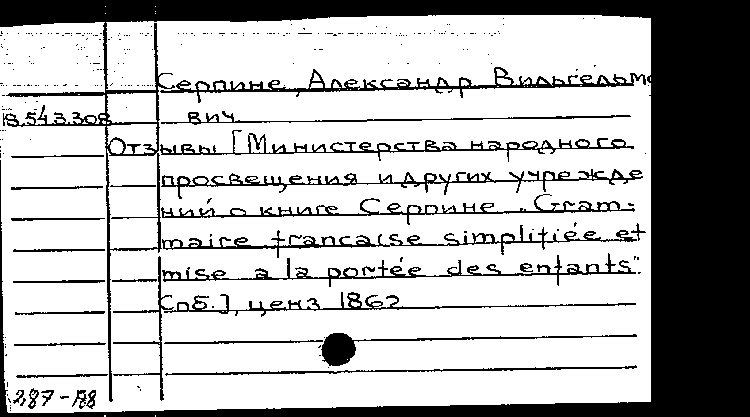 Серпине, Александр Вильгельмо
18.543.308 вич
Отзывы [Министерства народного
просвещения и других учрежде
ний о книге Серпине „Gram-
maire francaise simplifiée et
mise a la portée des enfants"
Спб.], ценз 1862
287-78